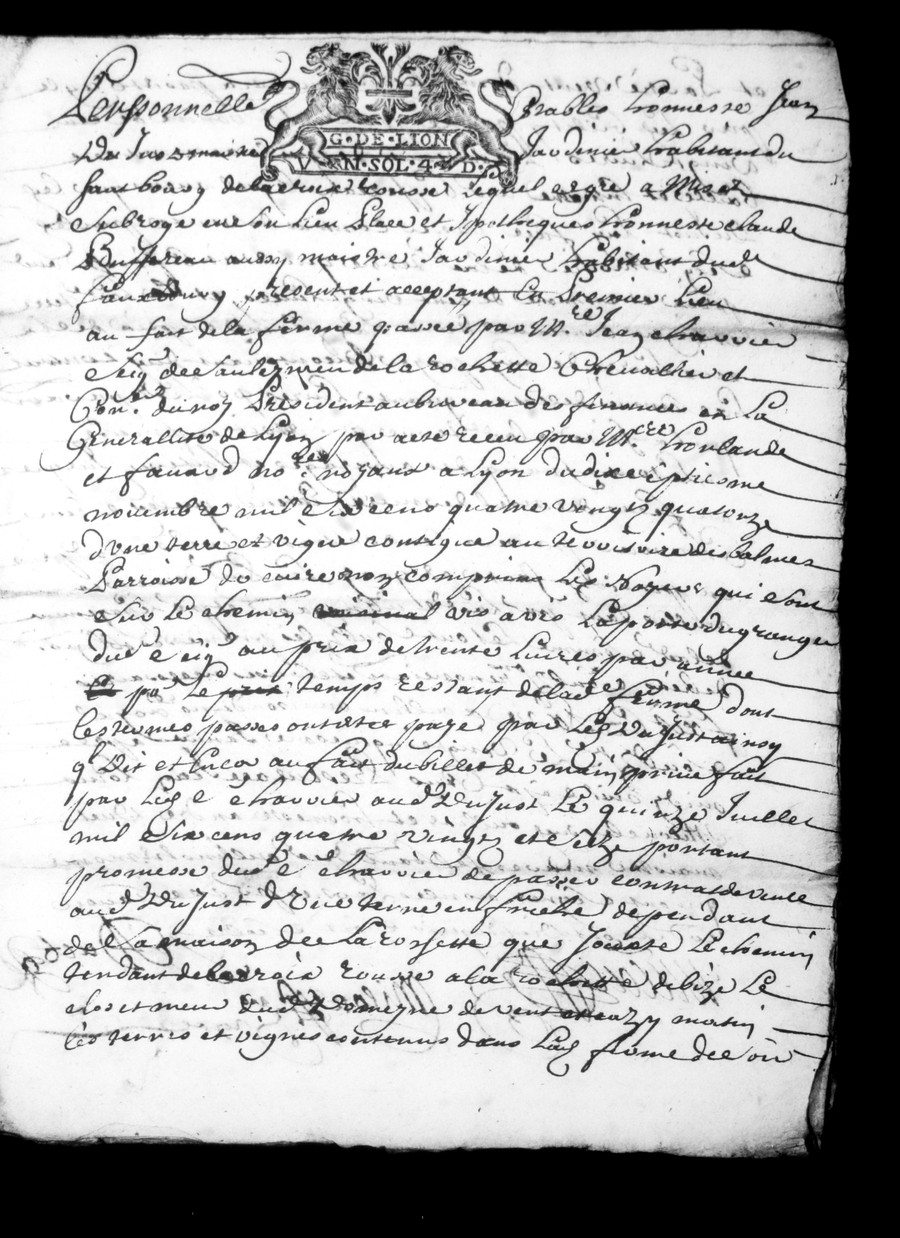 Personnelle Estably honneste Jean
G·DE·LION
Du Just maitre Jardinier habitant du
VN·SOL·4·D·
fautbourg de la croix rousse lequel de gre a Mis et
Subroge en son lieu Place et Ipotheques honneste claude
aussy maistre Jardinier habitant dud
fauxbourg present et acceptant En Premier Lieu
au fait de la ferme passee par Mre Jean charrier
Seigr de la rochette Chevallier et
Conr. du roy President au bureau des finances en La
Generallite de Lyon par acte receu par Mre
et favard nores royaux a Lyon du dix septiesme
novembre mil six cens quatre vingtz quatorze
d'une terre et vigne contigue au territtoire des balmes
Parroisse de cuire non comprins Les Noyers qui sont
Sur Le chemin vis avis La porte du grange
dud Seigr au prix de trente Livres par annee
pr Le temps restant de lad ferme dont
les termes passes ont este paye par Led Du Just ainsy
ql Dit et Encor au fait du billet de main prive fait
par Led Sr charrier aud Du Just Le quinze Juillet
mil six cens quatre vingtz et seize portant
promesse dud Sr charrier de passer contrat de vente
aud Du Just d'Une terre en friche dependant
de La maison de La rossette que Jouxte Le chemin
tendant de la croix rousse a la rochette de bize Le
clos et meur dud Domeyne de vent et matin
les terres et vignes contenus dans Lad ferme de